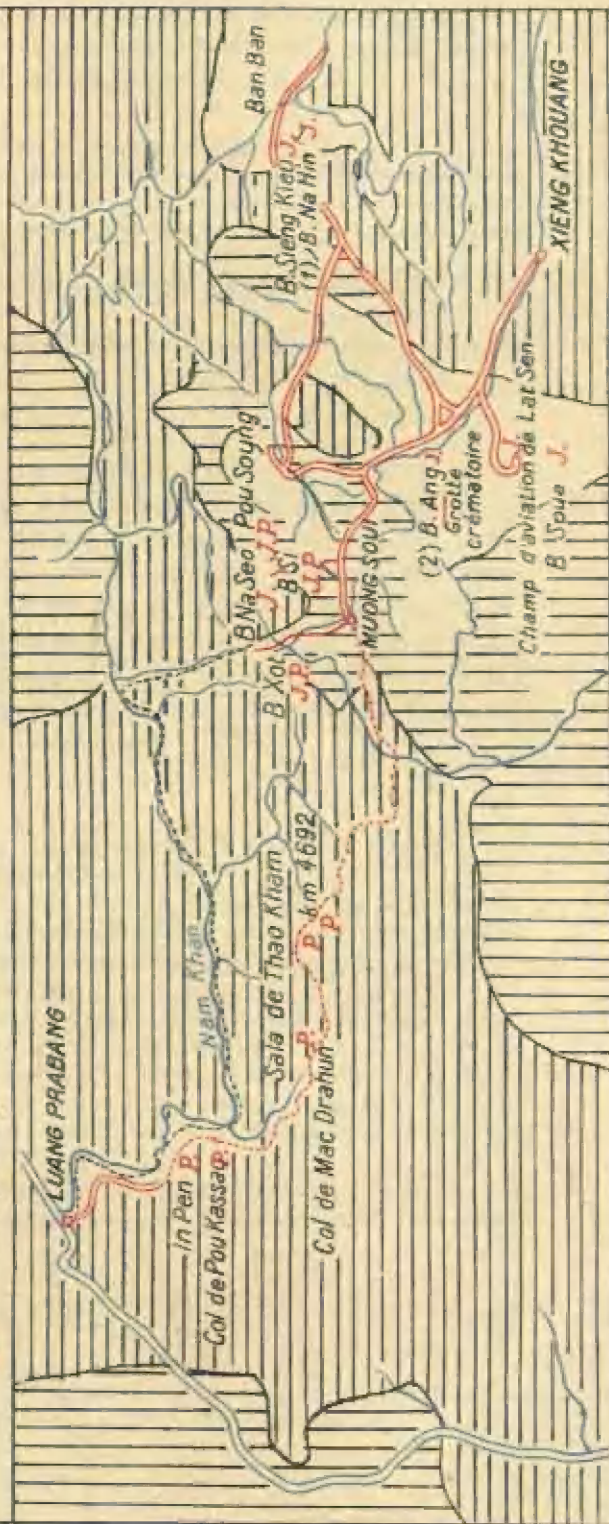 LUANG PRABANG
In Pen P.
Col de Pou Kassa P.
Nam Khan
Sala de Thao Kham
P.
Col de Mac Drahun
km 4692
P.
P.
B. Xot
J. P.
B Na Seo
J.
Pou Soung
J. P.
B Si
J. P.
MUONG SOUI
(2) B. Ang J.
Grotte
crématoire
Champ d'aviation de Lat Sen
B Soue J.
Ban Ban
B. Sieng Kieu J.
(1) B. Na Hin J.
XIENG KHOUANG